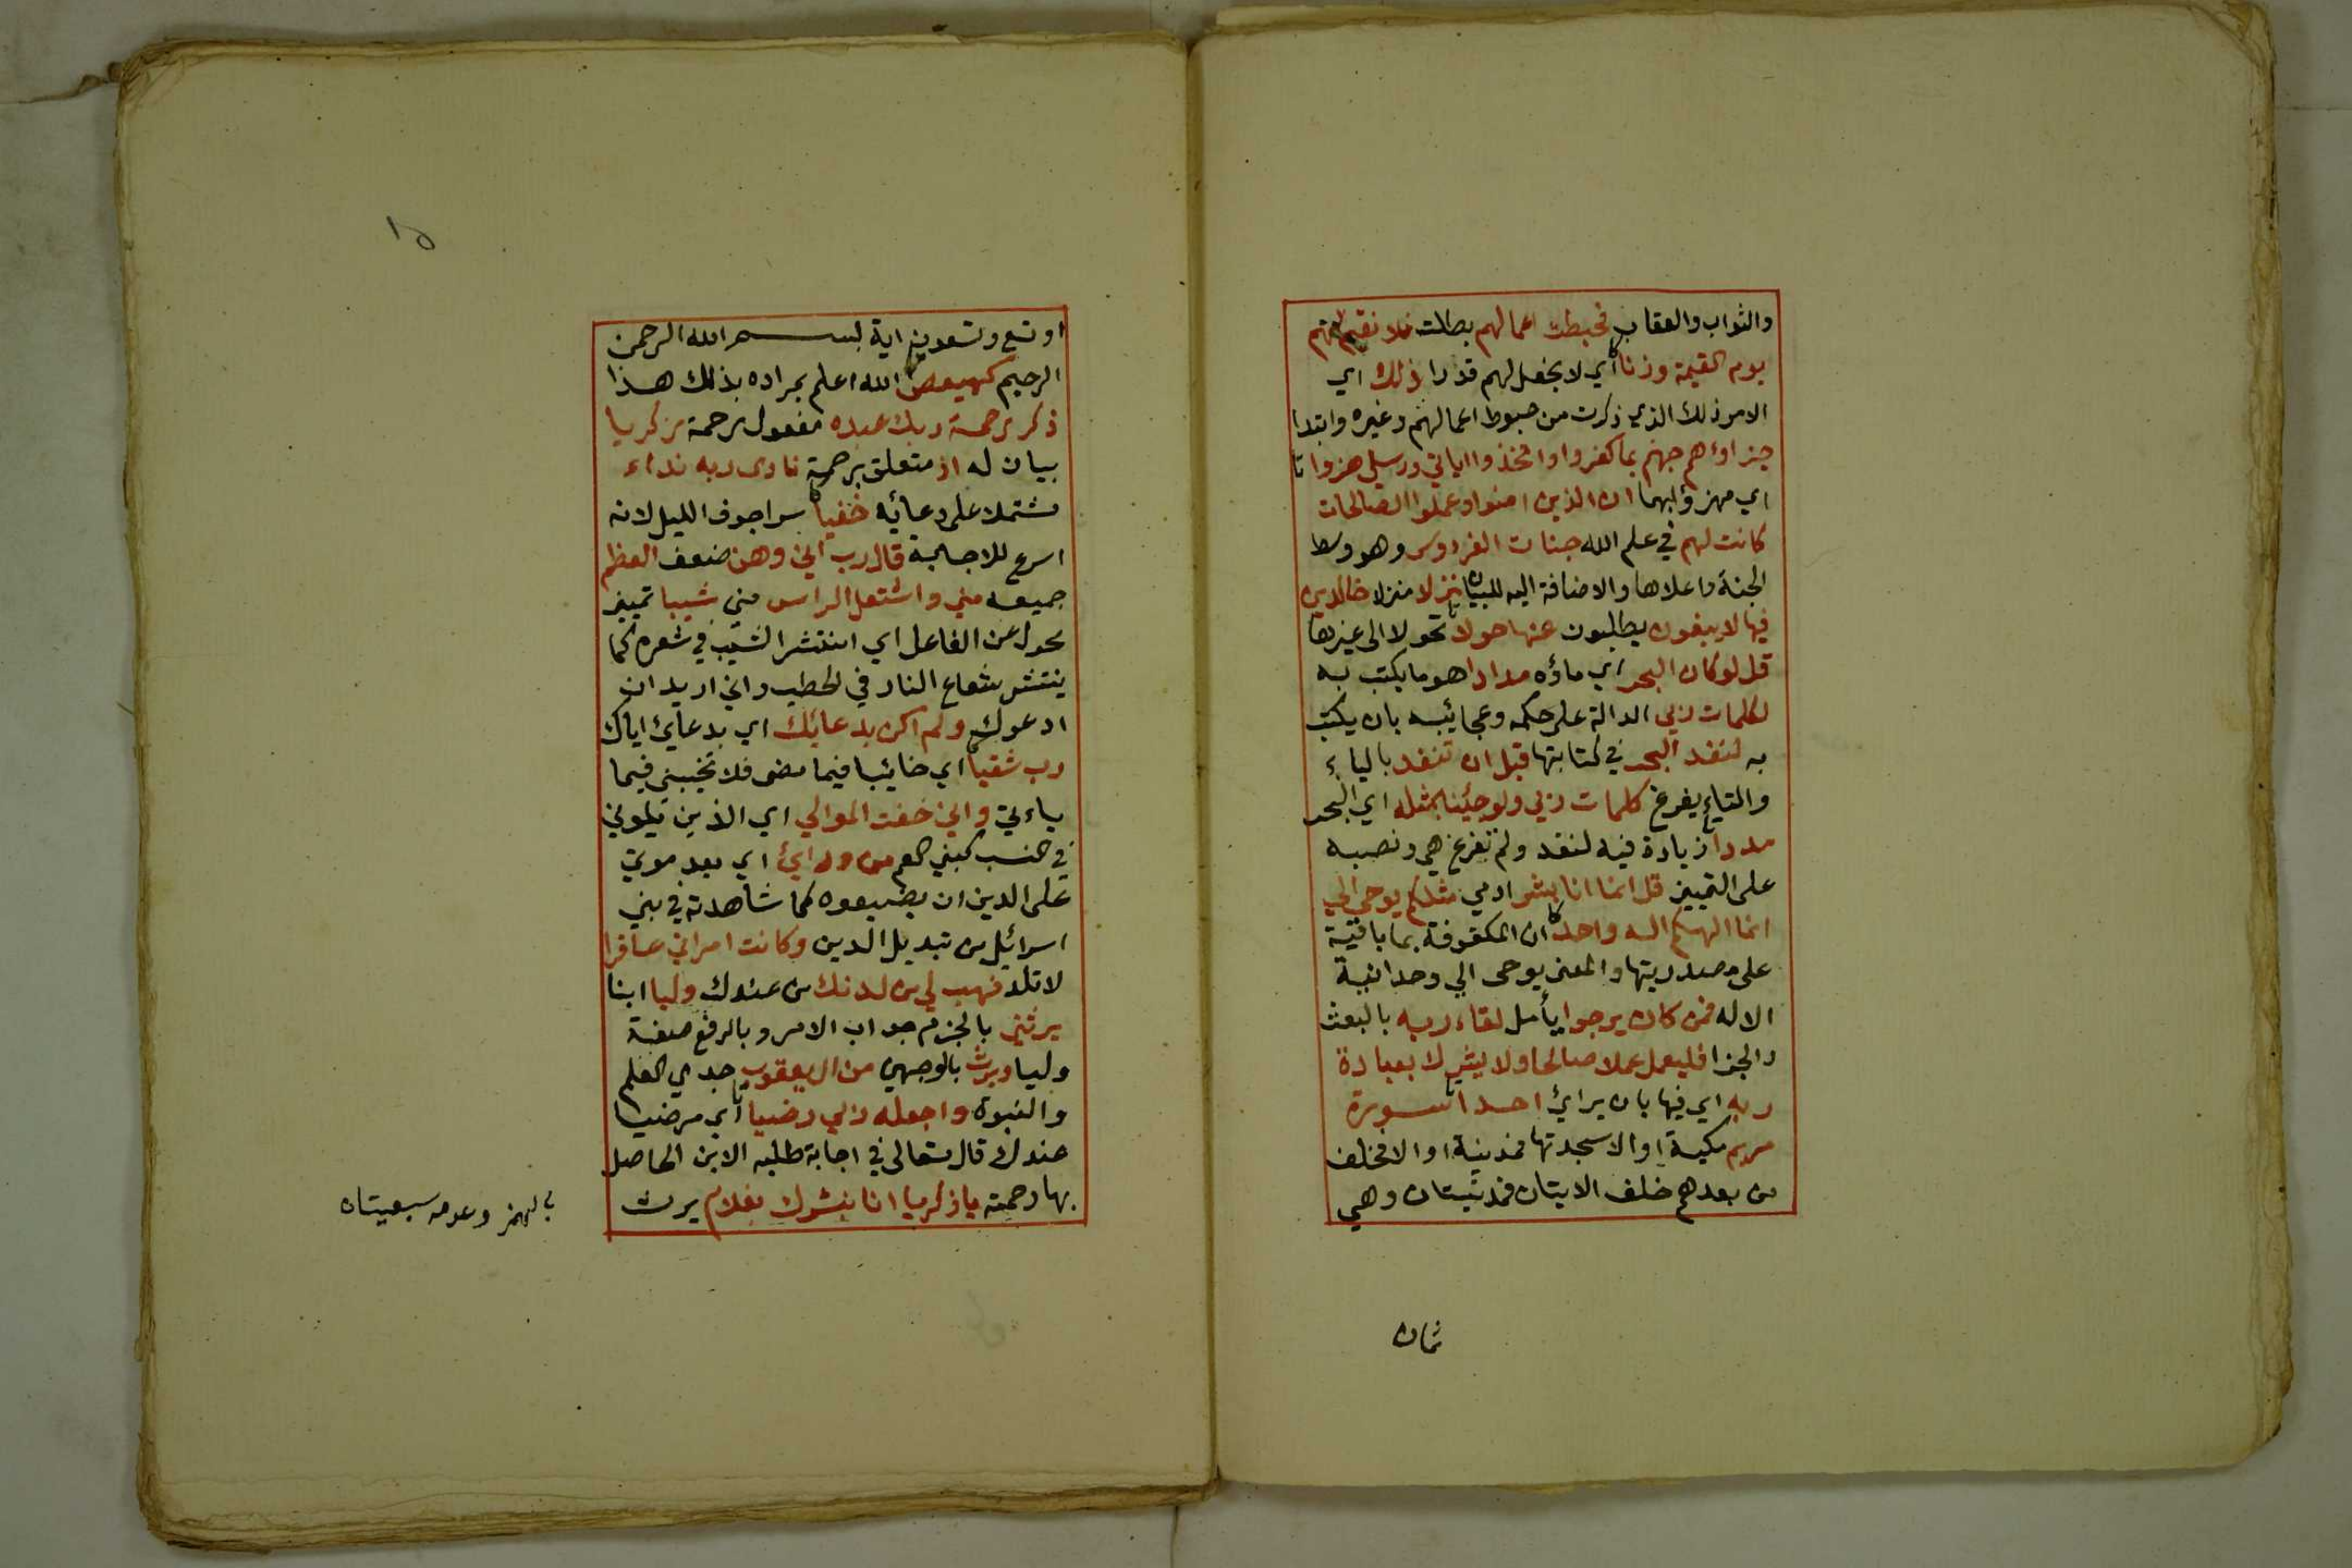 والثواب والعقاب فحبطت اعمالهم بطلت فلا نقيم لهم
يوم القيمة وزنا اي لا نجعل لهم قدرا ذلك اي
الامر ذلك الذي ذكرت من حبوط اعمالهم وغيره وابتدا
جزاؤهم جهنم بما كفروا واتخذوا اياتي ورسلي هزوا
اي مهزؤا بهما ان الذين امنوا وعملوا الصالحات
كانت لهم في علم الله جنات الفردوس وهو وسط
الجنة واعلاها والاضافة اليه للبيان نزلا منزلا خالدين
فيها لا يبغون يطلبون عنها حولا تحولا الى غيرها
قل لو كان البحر اي ماؤه مدادا هو ما يكتب به
لكلمات ربي الدالة على حكمه وعجائبه بان يكتب
به لنفد البحر في كتابتها قبل ان تنفد بالياء
والتاء يفرغ كلمات ربي ولو جئنا بمثله اي البحر
مددا زيادة فيه لنفد ولم تفرغ هي ونصبه
على التمييز قل انما انا بشر ادمي مثلكم يوحى الي
انما الهكم اله واحد ان المكفوفة بما باقية
على مصدريتها والمعنى يوحى الي وحدانية
الاله فمن كان يرجوا يأمل لقاء ربه بالبعث
والجزا فليعمل عملا صالحا ولا يشرك بعبادة
ربه اي فيها بان يرائ احدا سورة
مريم مكية او الا سجدتها فمدنية او الا فخلف
من بعدهم خلف الايتان فمدنيتان وهي
ثمان
او تسع وتسعون اية بسم الله الرحمن
الرحيم كهيعص الله اعلم بمراده بذلك هذا
ذكر رحمة ربك عبده مفعول رحمة زكريا
بيان له اذ متعلق برحمة نادى ربه نداء
مشتملا على دعائه خفيا سرا جوف الليل لانه
اسرع للاجابة قال رب اني وهن ضعف العظم
جميعه مني واشتعل الراس مني شيبا تمييز
محول عن الفاعل اي انتشر الشيب في شعره كما
ينتشر شعاع النار في الحطب واني اريد ان
ادعوك ولم اكن بدعائك اي بدعائ اياك
رب شقيا اي خائبا فيما مضى فلا تخيبني فيما
ياءتي واني خفت الموالي اي الذين يلوني
في النسب كبني العم من ورائ اي بعد موتي
على الدين ان يضيعوه كما شاهدته في بني
اسرائيل من تبديل الدين وكانت امراتي عاقرا
لا تلد فهب لي من لدنك من عندك وليا ابنا
يرثني بالجزم جواب الامر وبالرفع صفة
وليا ويرث بالوجهين من ال يعقوب جدي العلم
والنبوة واجعله ربي رضيا اي مرضيا
عندك قال تعالى في اجابة طلبه الابن الحاصل
بها رحمته يا زكريا انا نبشرك بغلام يرث
بالهمز وعدمه سبعيتان